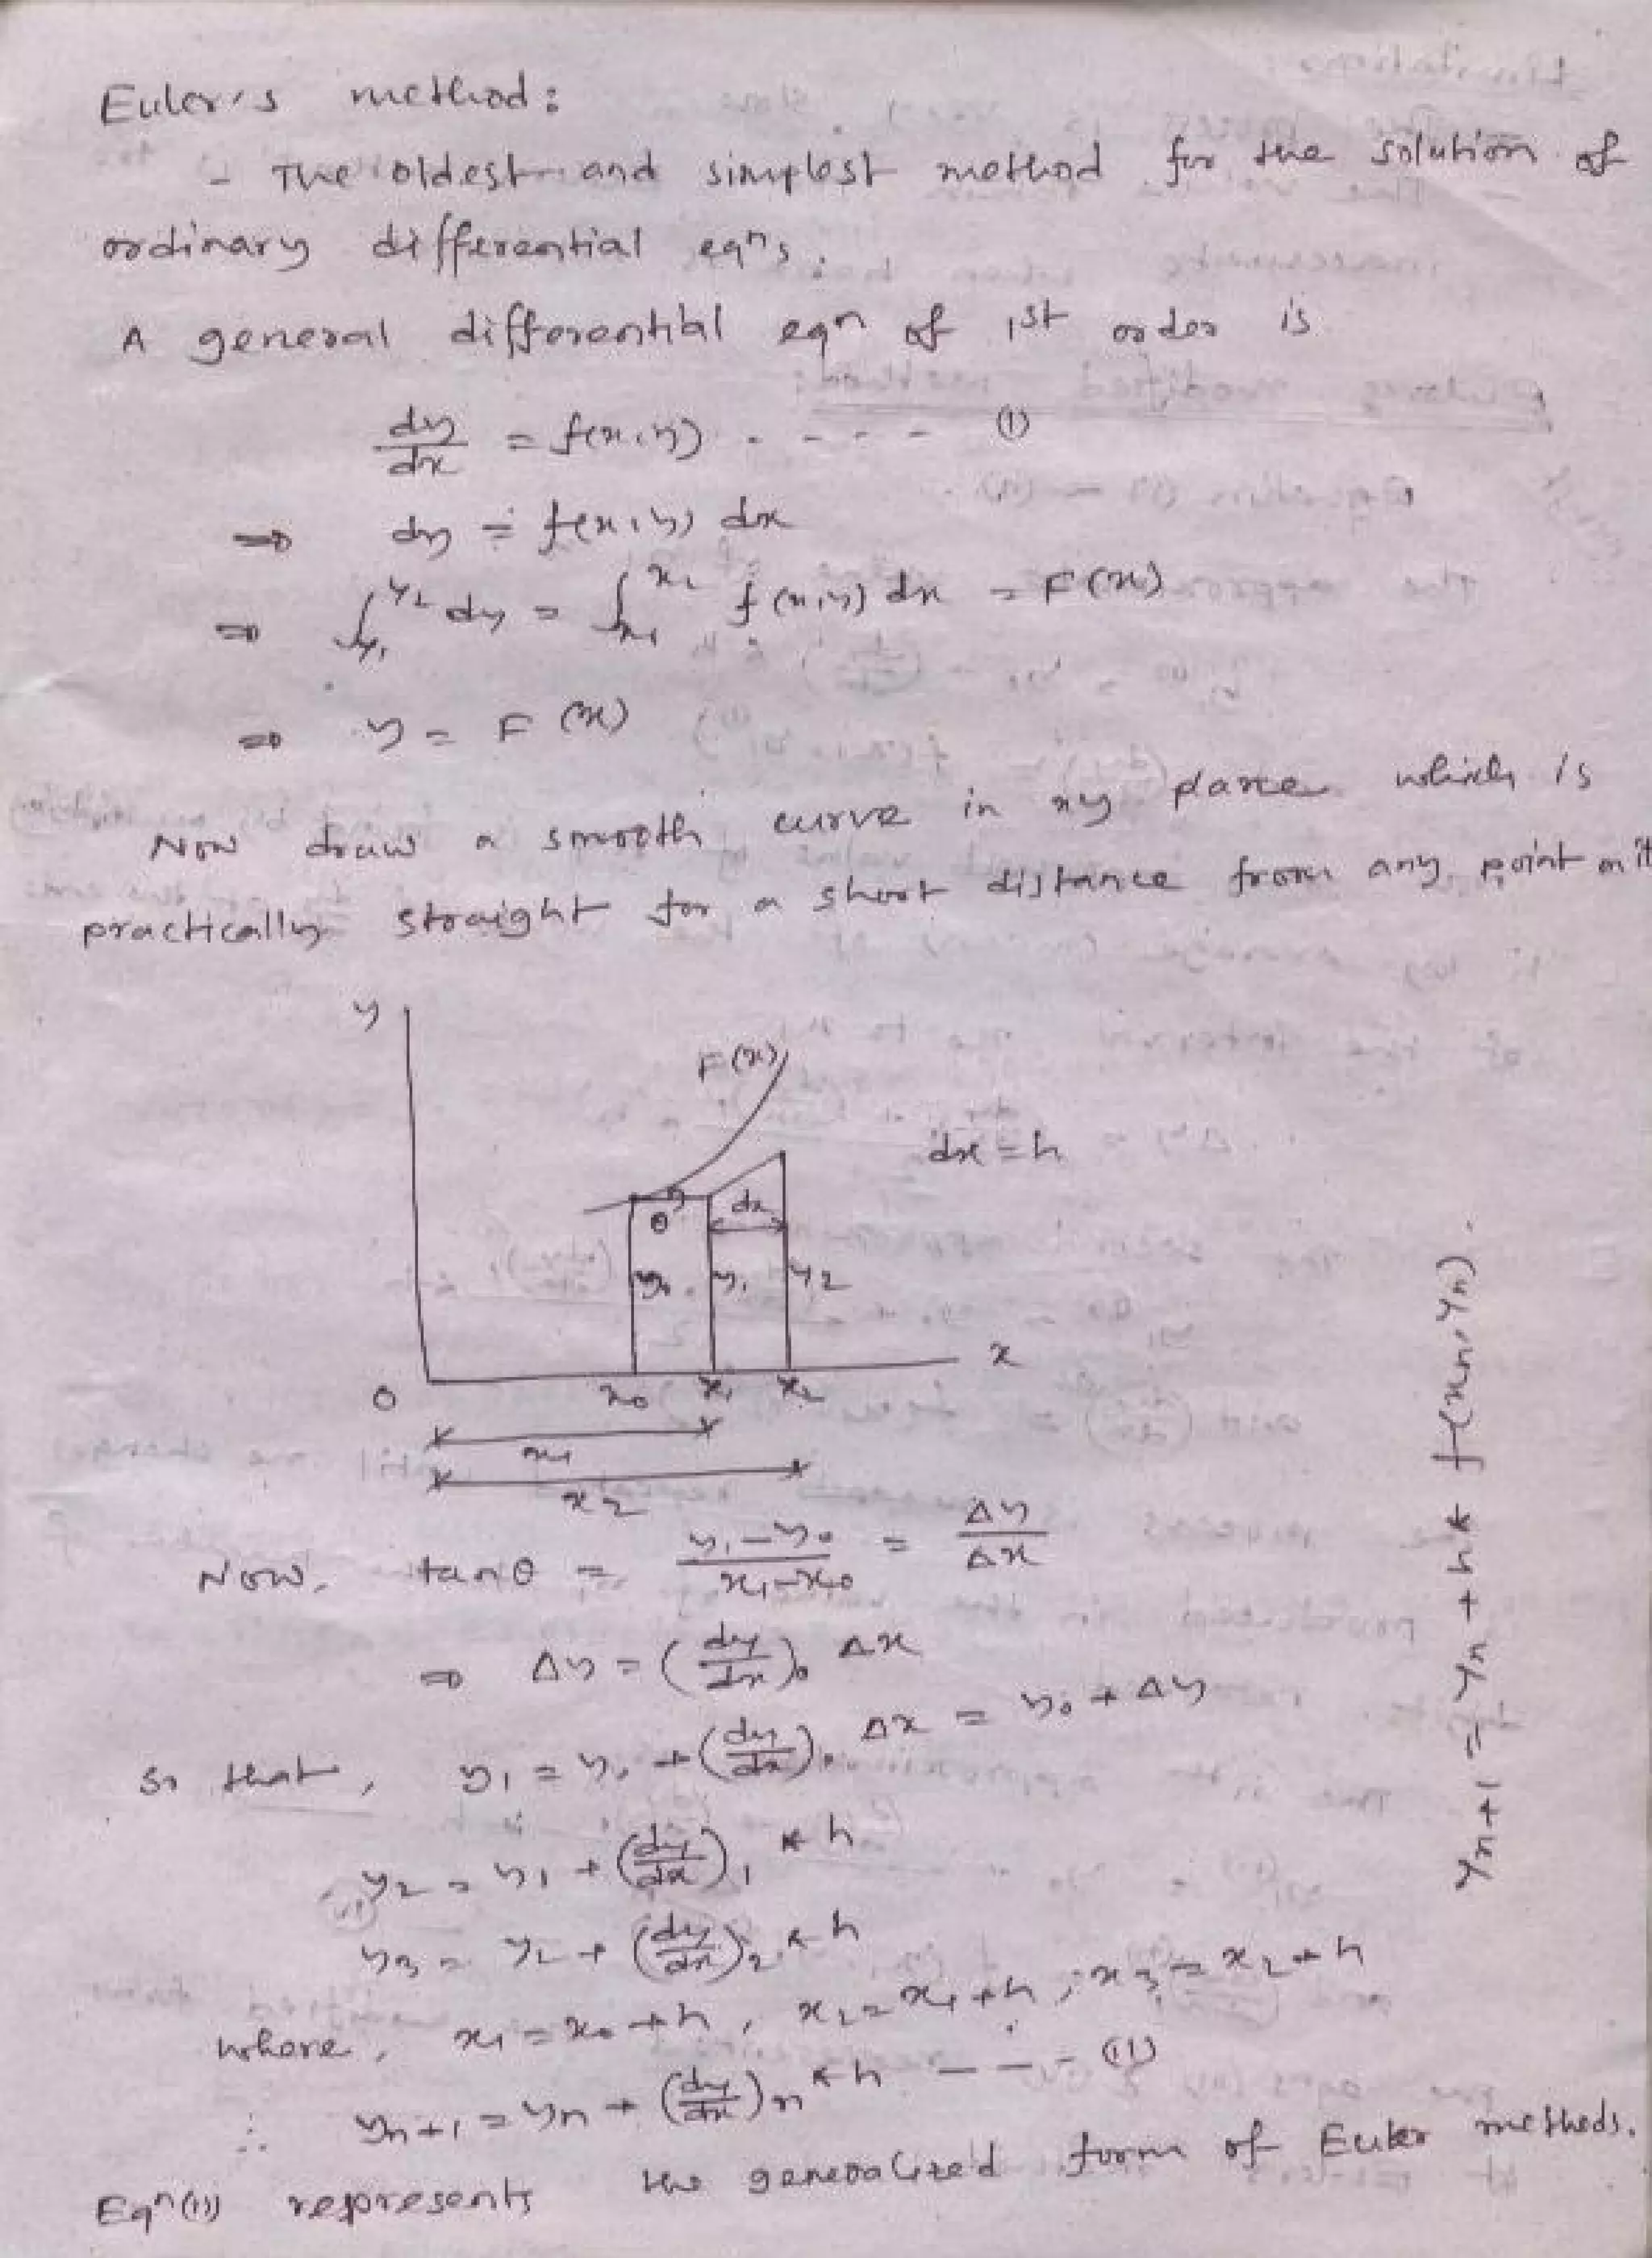 Euler's method:
- The oldest and simplest method for the solution of
ordinary differential eqns.
A general differential eqn of 1st order is
dy/dx = f(x,y) . - - - - (1)
⇒ dy = f(x,y) dx
⇒ ∫_{y1}^{y2} dy = ∫_{x1}^{x2} f(x,y) dx = F(x)
⇒ y = F(x)
Now draw a smooth curve in xy plane which is
practically straight for a short distance from any point on it
y
F(x)
dx = h
θ dx
y0 y1 y2
x
O x0 x1 x2
x1
x2
Now, tanθ = (y1-y0)/(x1-x0) = Δy/Δx
⇒ Δy = (dy/dx)0 Δx
so that, y1 = y0 + (dy/dx)0 Δx = y0 + Δy
y2 = y1 + (dy/dx)1 * h
y3 = y2 + (dy/dx)2 * h
where, x1 = x0 + h, x2 = x1 + h; x3 = x2 + h
∴ yn+1 = yn + (dy/dx)n * h - - - (11)
Eqn (11) represents the generalized form of Euler methods.
yn+1 = yn + h * f(xn, yn).